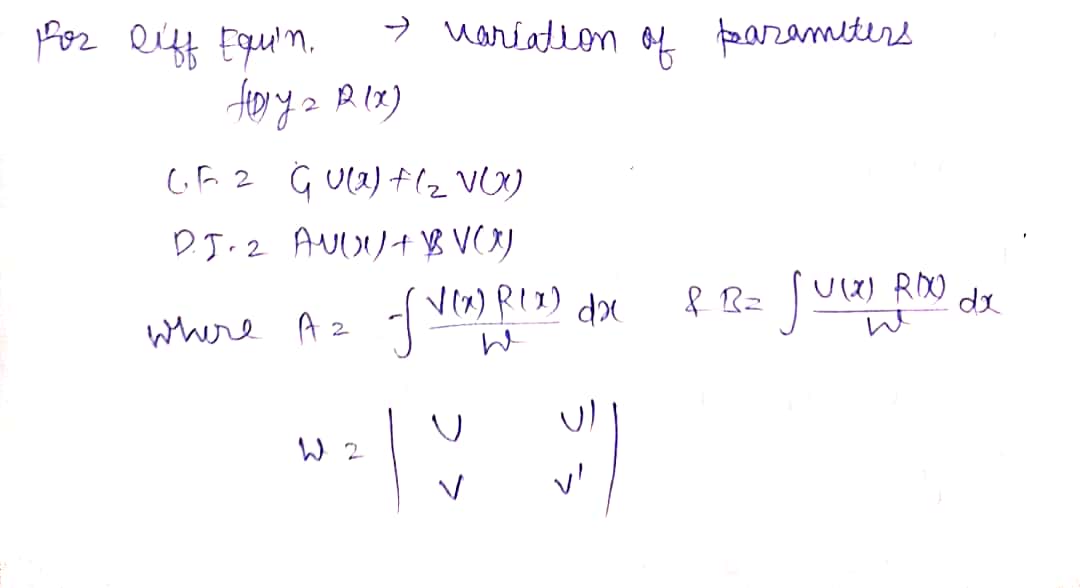 For Diff Equi'n. → Variation of parameters
f(D)y = R(x)
C.F. = C₁ U(x) + C₂ V(x)
P.I. = AU(x) + B V(x)
where A = -∫ V(x) R(x) / W dx & B = ∫ U(x) R(x) / W dx
W = | U U' |
| V V' |